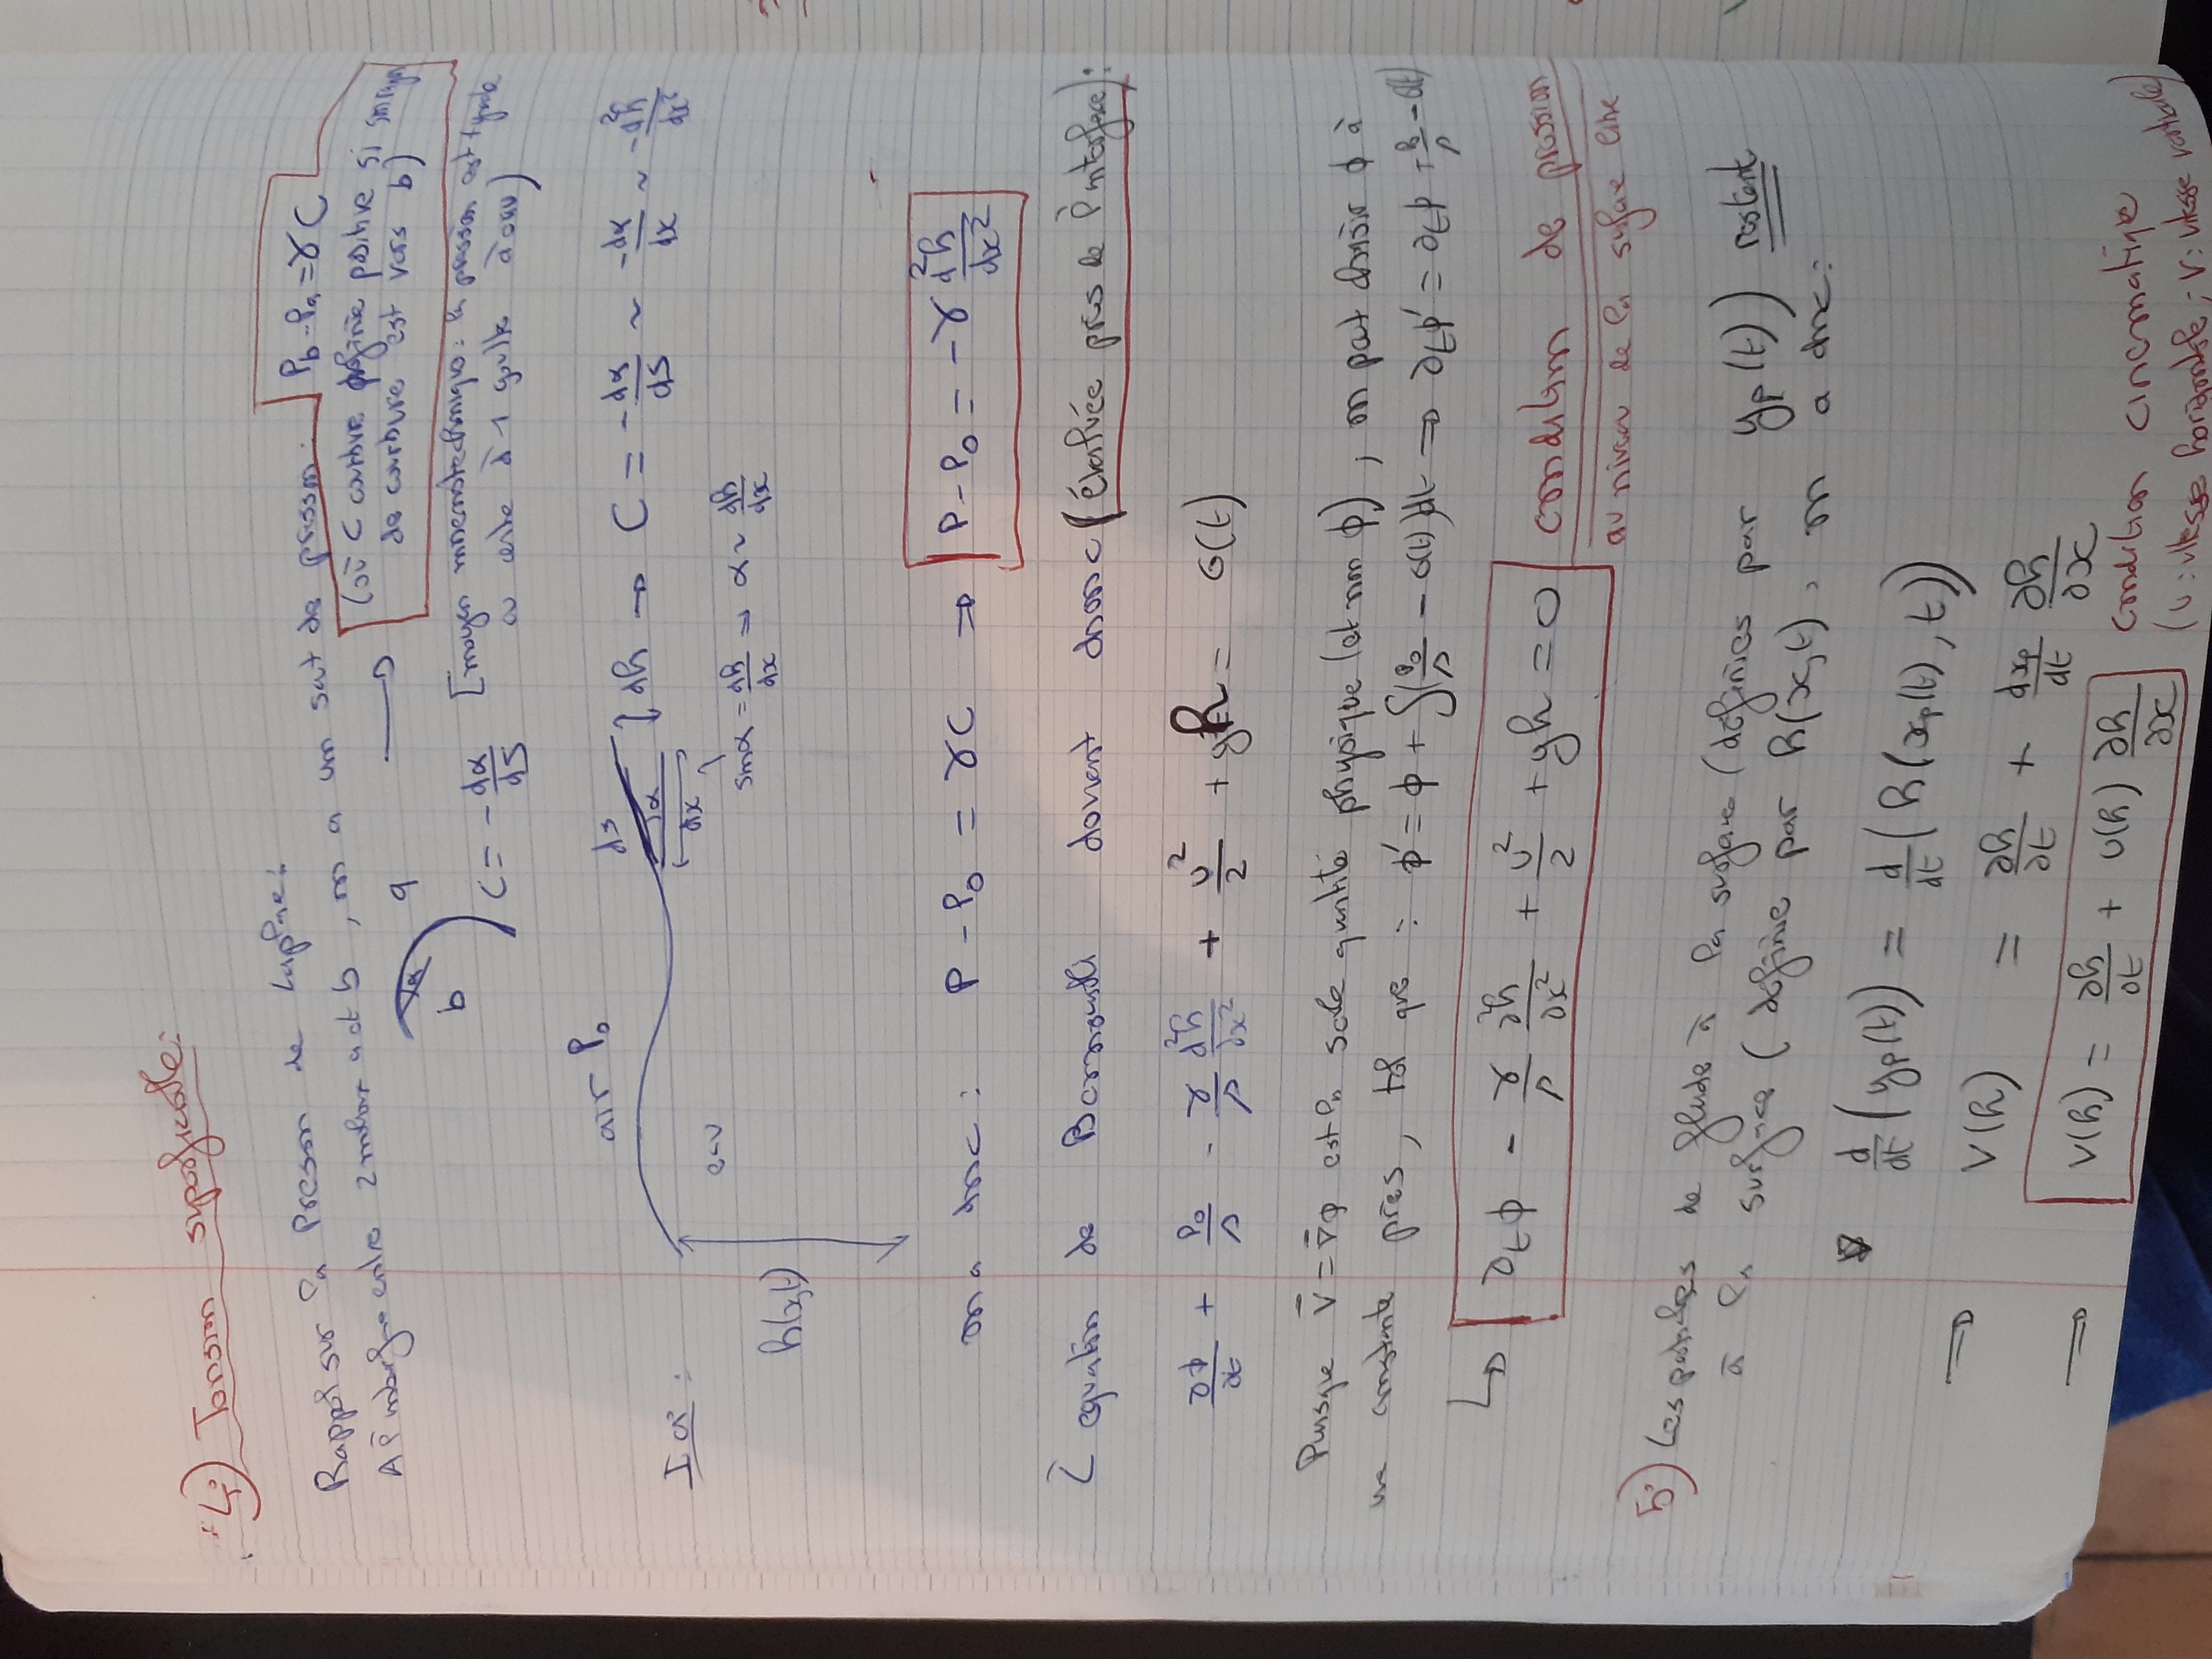 4°) Tension superficielle:
Rappel sur la Pression de Laplace:
A l'interface entre 2 milieux a et b, on a un saut de pression: Pb - Pa = γC
(où C courbure définie positive si son rayon
de courbure est vers b)
α a
b
C = - dα/dS [moyen mnémotechnique: la pression est +grande
à 1 goutte d'eau)
air P₀
ds
dh → C = -dα/ds ~ -dα/dx ~ -d²h/dx²
Ici:
α
dx
eau
sinα = dh/dx ⇒ α ~ dh/dx
h(x,t)
on a donc: P - P₀ = γC ⇒ P - P₀ = -γ d²h/dx²
L'equation de Bernoulli devient donc (évaluée près de l'interface):
∂ϕ/∂t + P₀/ρ - γ/ρ d²h/dx² + u²/2 + gh = G(t)
Puisque v⃗ = ∇⃗ϕ est la seule quantité physique (et non ϕ), on peut choisir ϕ à
une constante près, tel que: ϕ' = ϕ + ∫(P₀/ρ - G(t))dt ⇒ ∂tϕ' = ∂tϕ + P₀/ρ - G(t)
↳ ∂tϕ - γ/ρ ∂²h/∂x² + u²/2 + gh = 0 condition de pression
au niveau de la surface libre
5°) Les particules de fluide à la surface (définies par yp(t)) restent
à la surface (définie par h(x,t), on a donc:
d/dt (yp(t)) = d/dt (h(xp(t), t))
⇒ V(h) = ∂h/∂t + dxp/dt ∂h/∂x
⇒ V(h) = ∂h/∂t + u(h) ∂h/∂x condition cinematique
(u: vitesse horizontale; v: vitesse verticale)